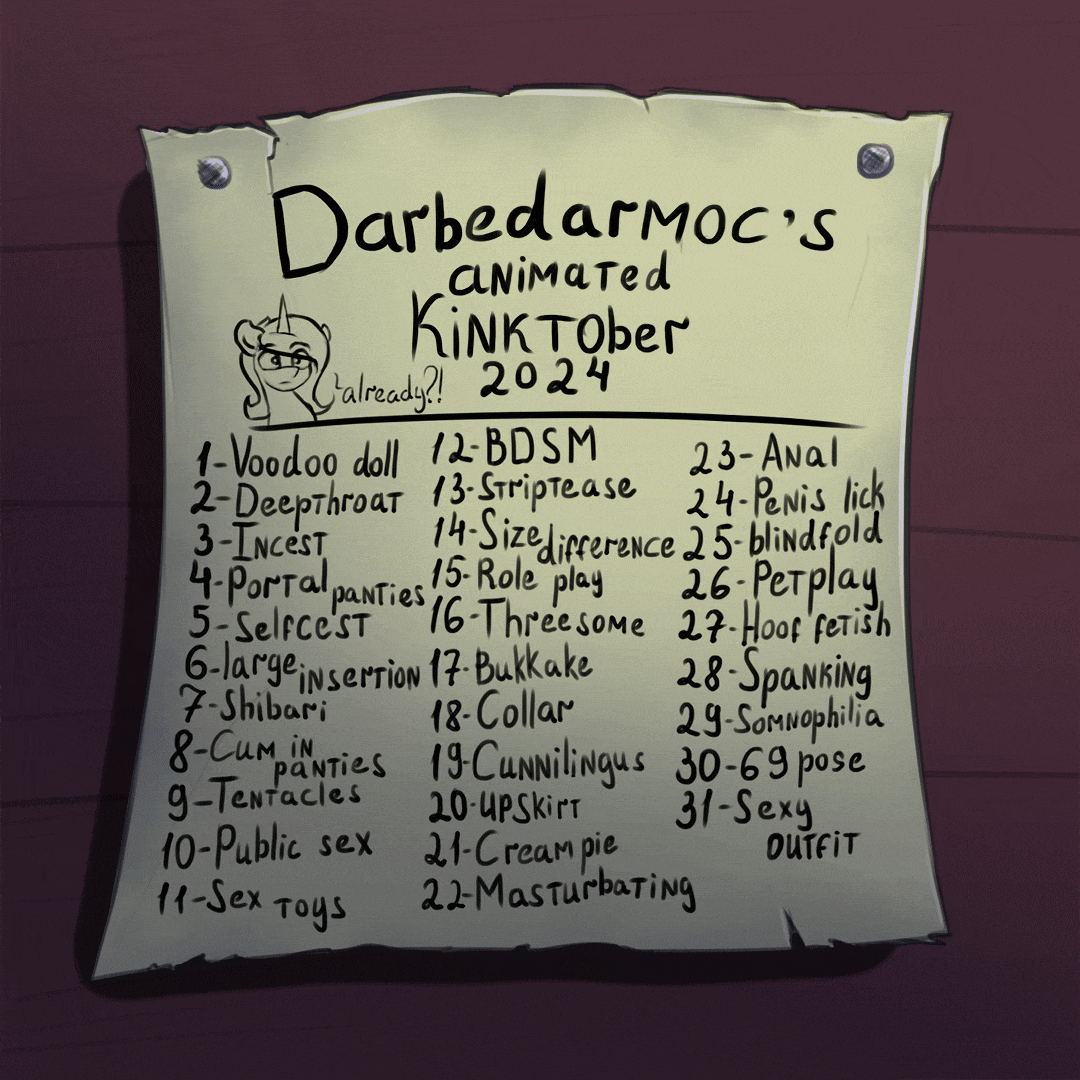 Darbedarmoc's
animated
Kinktober
2024
already?!
1-Voodoo doll
2-Deepthroat
3-Incest
4-Portal panties
5-Selfcest
6-large insertion
7-Shibari
8-Cum in panties
9-Tentacles
10-Public sex
11-Sex toys
12-BDSM
13-Striptease
14-Size difference
15-Role play
16-Threesome
17-Bukkake
18-Collar
19-Cunnilingus
20-upskirt
21-Creampie
22-Masturbating
23-Anal
24-Penis lick
25-blindfold
26-Petplay
27-Hoof fetish
28-Spanking
29-Somnophilia
30-69 pose
31-Sexy
outfit